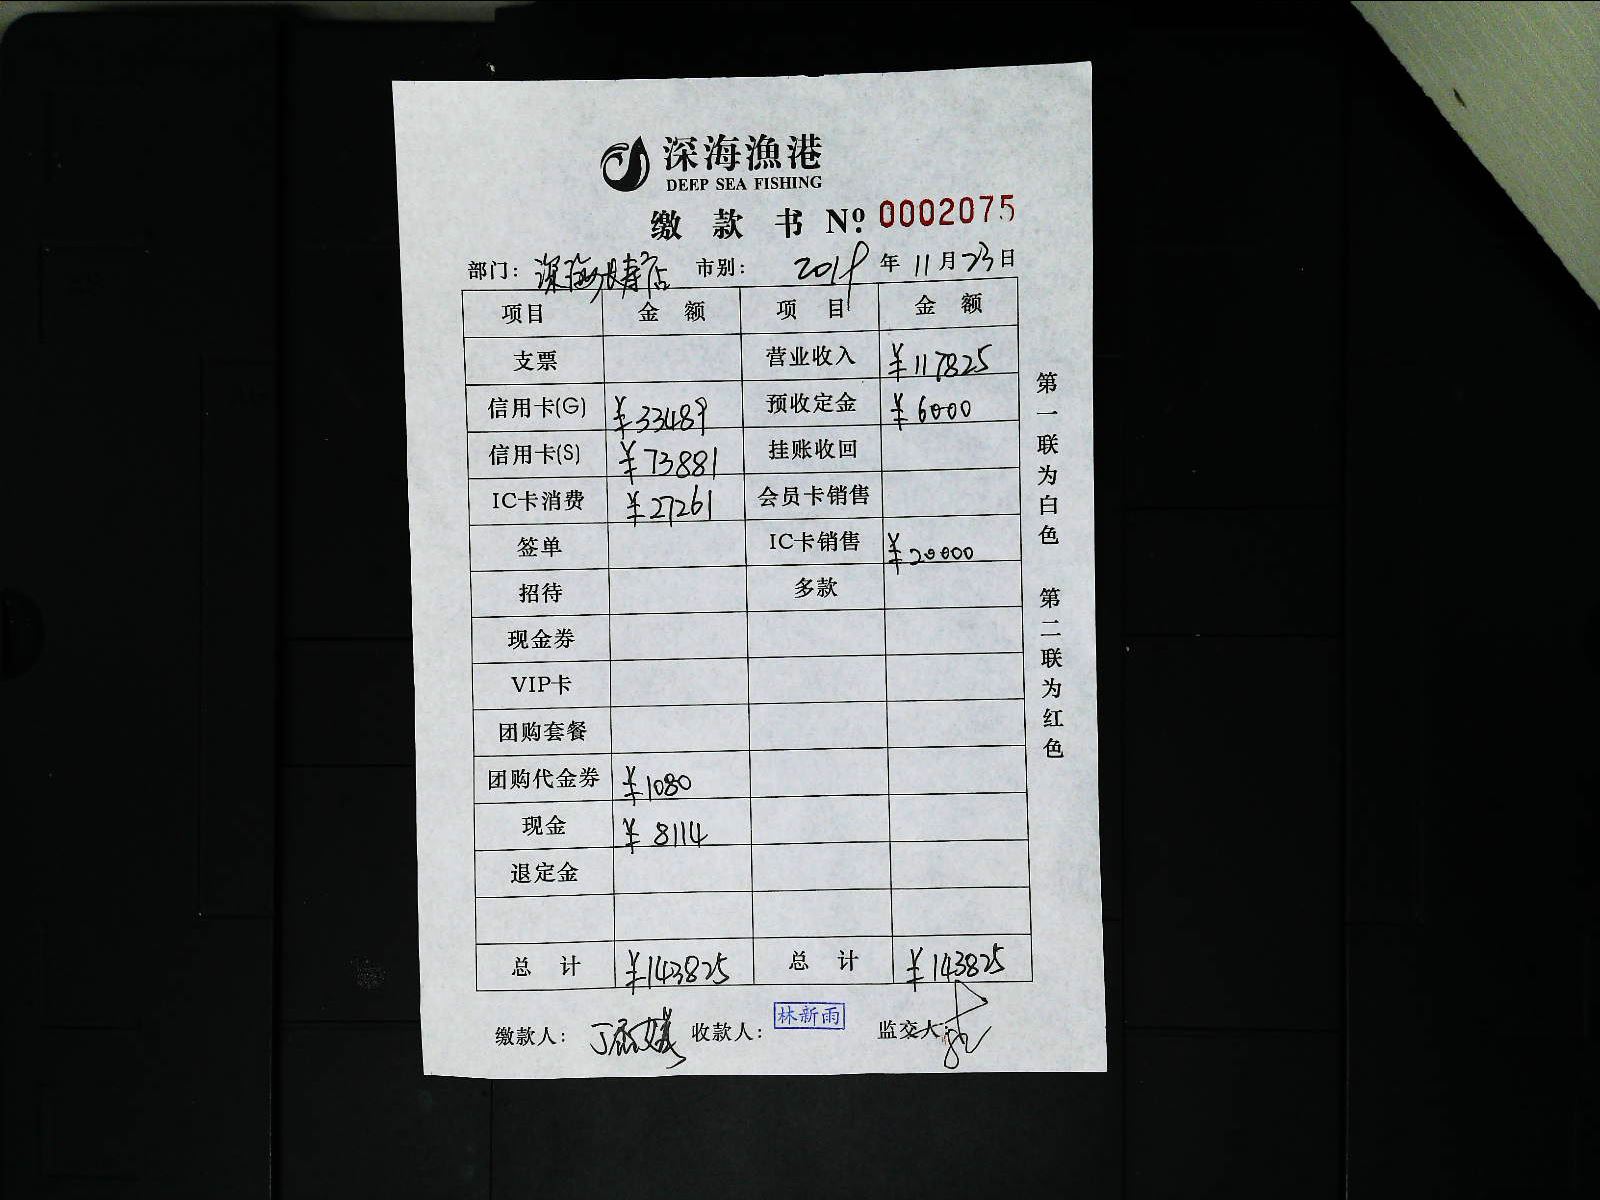 深海漁港
DEEP SEA FISHING
缴 款 书 Nº: 0002075
部门: 深海长寿店 市别: 2019 年 11 月 23 日
项目 金 额 项 目 金 额
支票 营业收入 ¥117825
信用卡(G) ¥33489 预收定金 ¥6000
信用卡(S) ¥73881 挂账收回
IC卡消费 ¥27261 会员卡销售
签单 IC卡销售 ¥20000
招待 多款
现金券
VIP卡
团购套餐
团购代金券 ¥1080
现金 ¥8114
退定金
总 计 ¥143825 总 计 ¥143825
缴款人: 收款人: 林新雨 监交人:
第一联为白色 第二联为红色